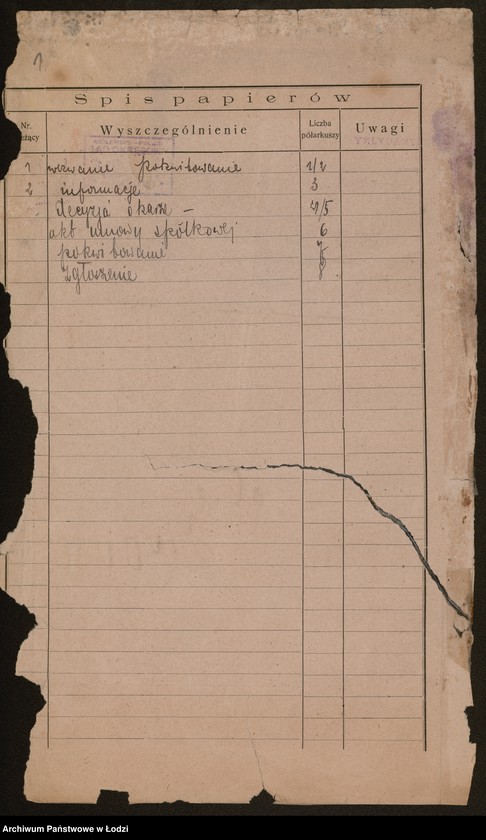 1
Spis papierów
Nr.
Wyszczególnienie
Liczba półarkuszy
Uwagi
1 wezwanie pokwitowanie 1/2
2 informacje 3
decyzja o karze – 4/5
akt umowy spółkowej 6
pokwitowanie 7
zgłoszenie 8
Archiwum Państwowe w Łodzi